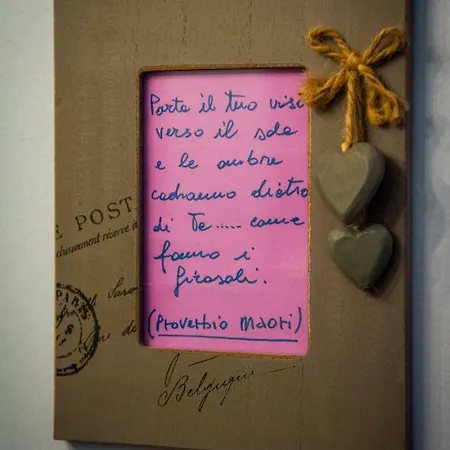 Porta il tuo vis
verso il sole
e le ombre
cadranno dietro
di Te..... come
fanno i
girasoli.
(Proverbio Maori)
E POST
clusivement réservé a
PARIS
de
Belgique